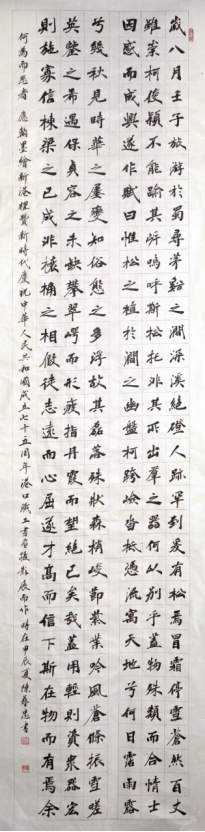 歲八月壬子旅游於蜀尋茅谿之澗深溪絕磴人跡罕到爰有松焉冒霜停雪蒼然百丈
雖崇柯俊穎不能踰其岍嗚呼斯松托非其所出羣之器何從别乎蓋物殊類而合情士
因感而成興遂作賦曰惟松之植於澗之幽盤柯跨嶮沓柢憑流寓天地兮何日霑雨露
兮幾秋見時華之屢變知俗態之多浮故其磊落殊狀森梢峻節紫葉吟風蒼條振雪嗟
英鑒之希遇保貞容之未缺攀翠崿而形疲指丹霞而望絕已矣哉蓋用輕則資衆器宏
則施寡信棟梁之已成非榱桷之相假徒志遠而心屈遂才高而信下斯在物而有焉余
何為而思者 應翰墨繪新港禮贊新時代慶祝中華人民共和國成立七十五周年港口職工書畫攝影展而作 時在甲辰夏陳春忠書